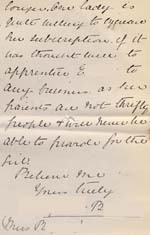 longer. One lady is
quite willing to guarantee
her subscription if it
was thought well to
apprentice E. to
any business as her
parents are not thrifty
people & will never be
able to provide for the
girl.
Believe me
Yours truly
B
Miss B.